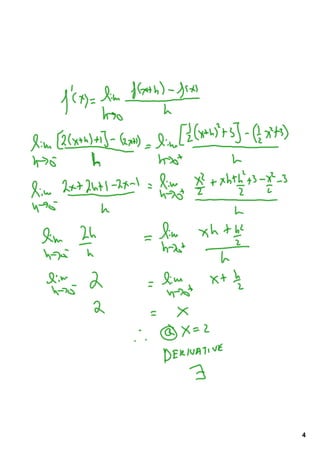 f'(x) = lim h→0 f(x+h) - f(x) / h
lim h→0⁻ [2(x+h)+1] - (2x+1) / h = lim h→0⁺ [½(x+h)²+3] - (½x²+3) / h
lim h→0⁻ 2x+2h+1-2x-1 / h = lim h→0⁺ x²/2 + xh + h²/2 + 3 - x²/2 - 3 / h
lim h→0⁻ 2h / h = lim h→0⁺ xh + h²/2 / h
lim h→0⁻ 2 = lim h→0⁺ x + h/2
2 = x
∴ @ x = 2
DERIVATIVE
∃
4